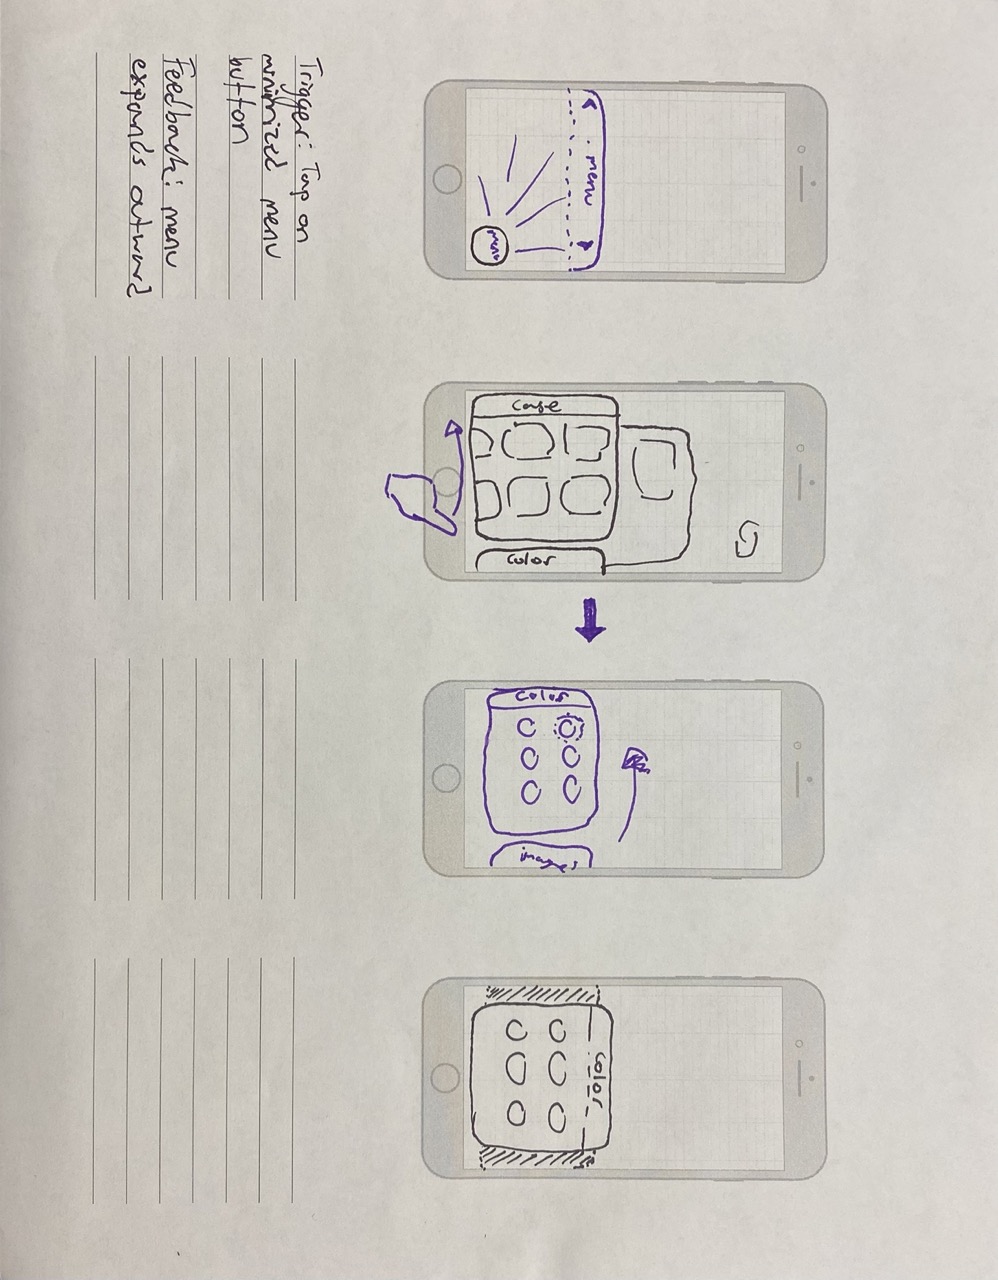 Trigger: Tap on
minimized menu
button
Feedback: menu
expands outward
menu
menu
Case
Color
Color
images
Color